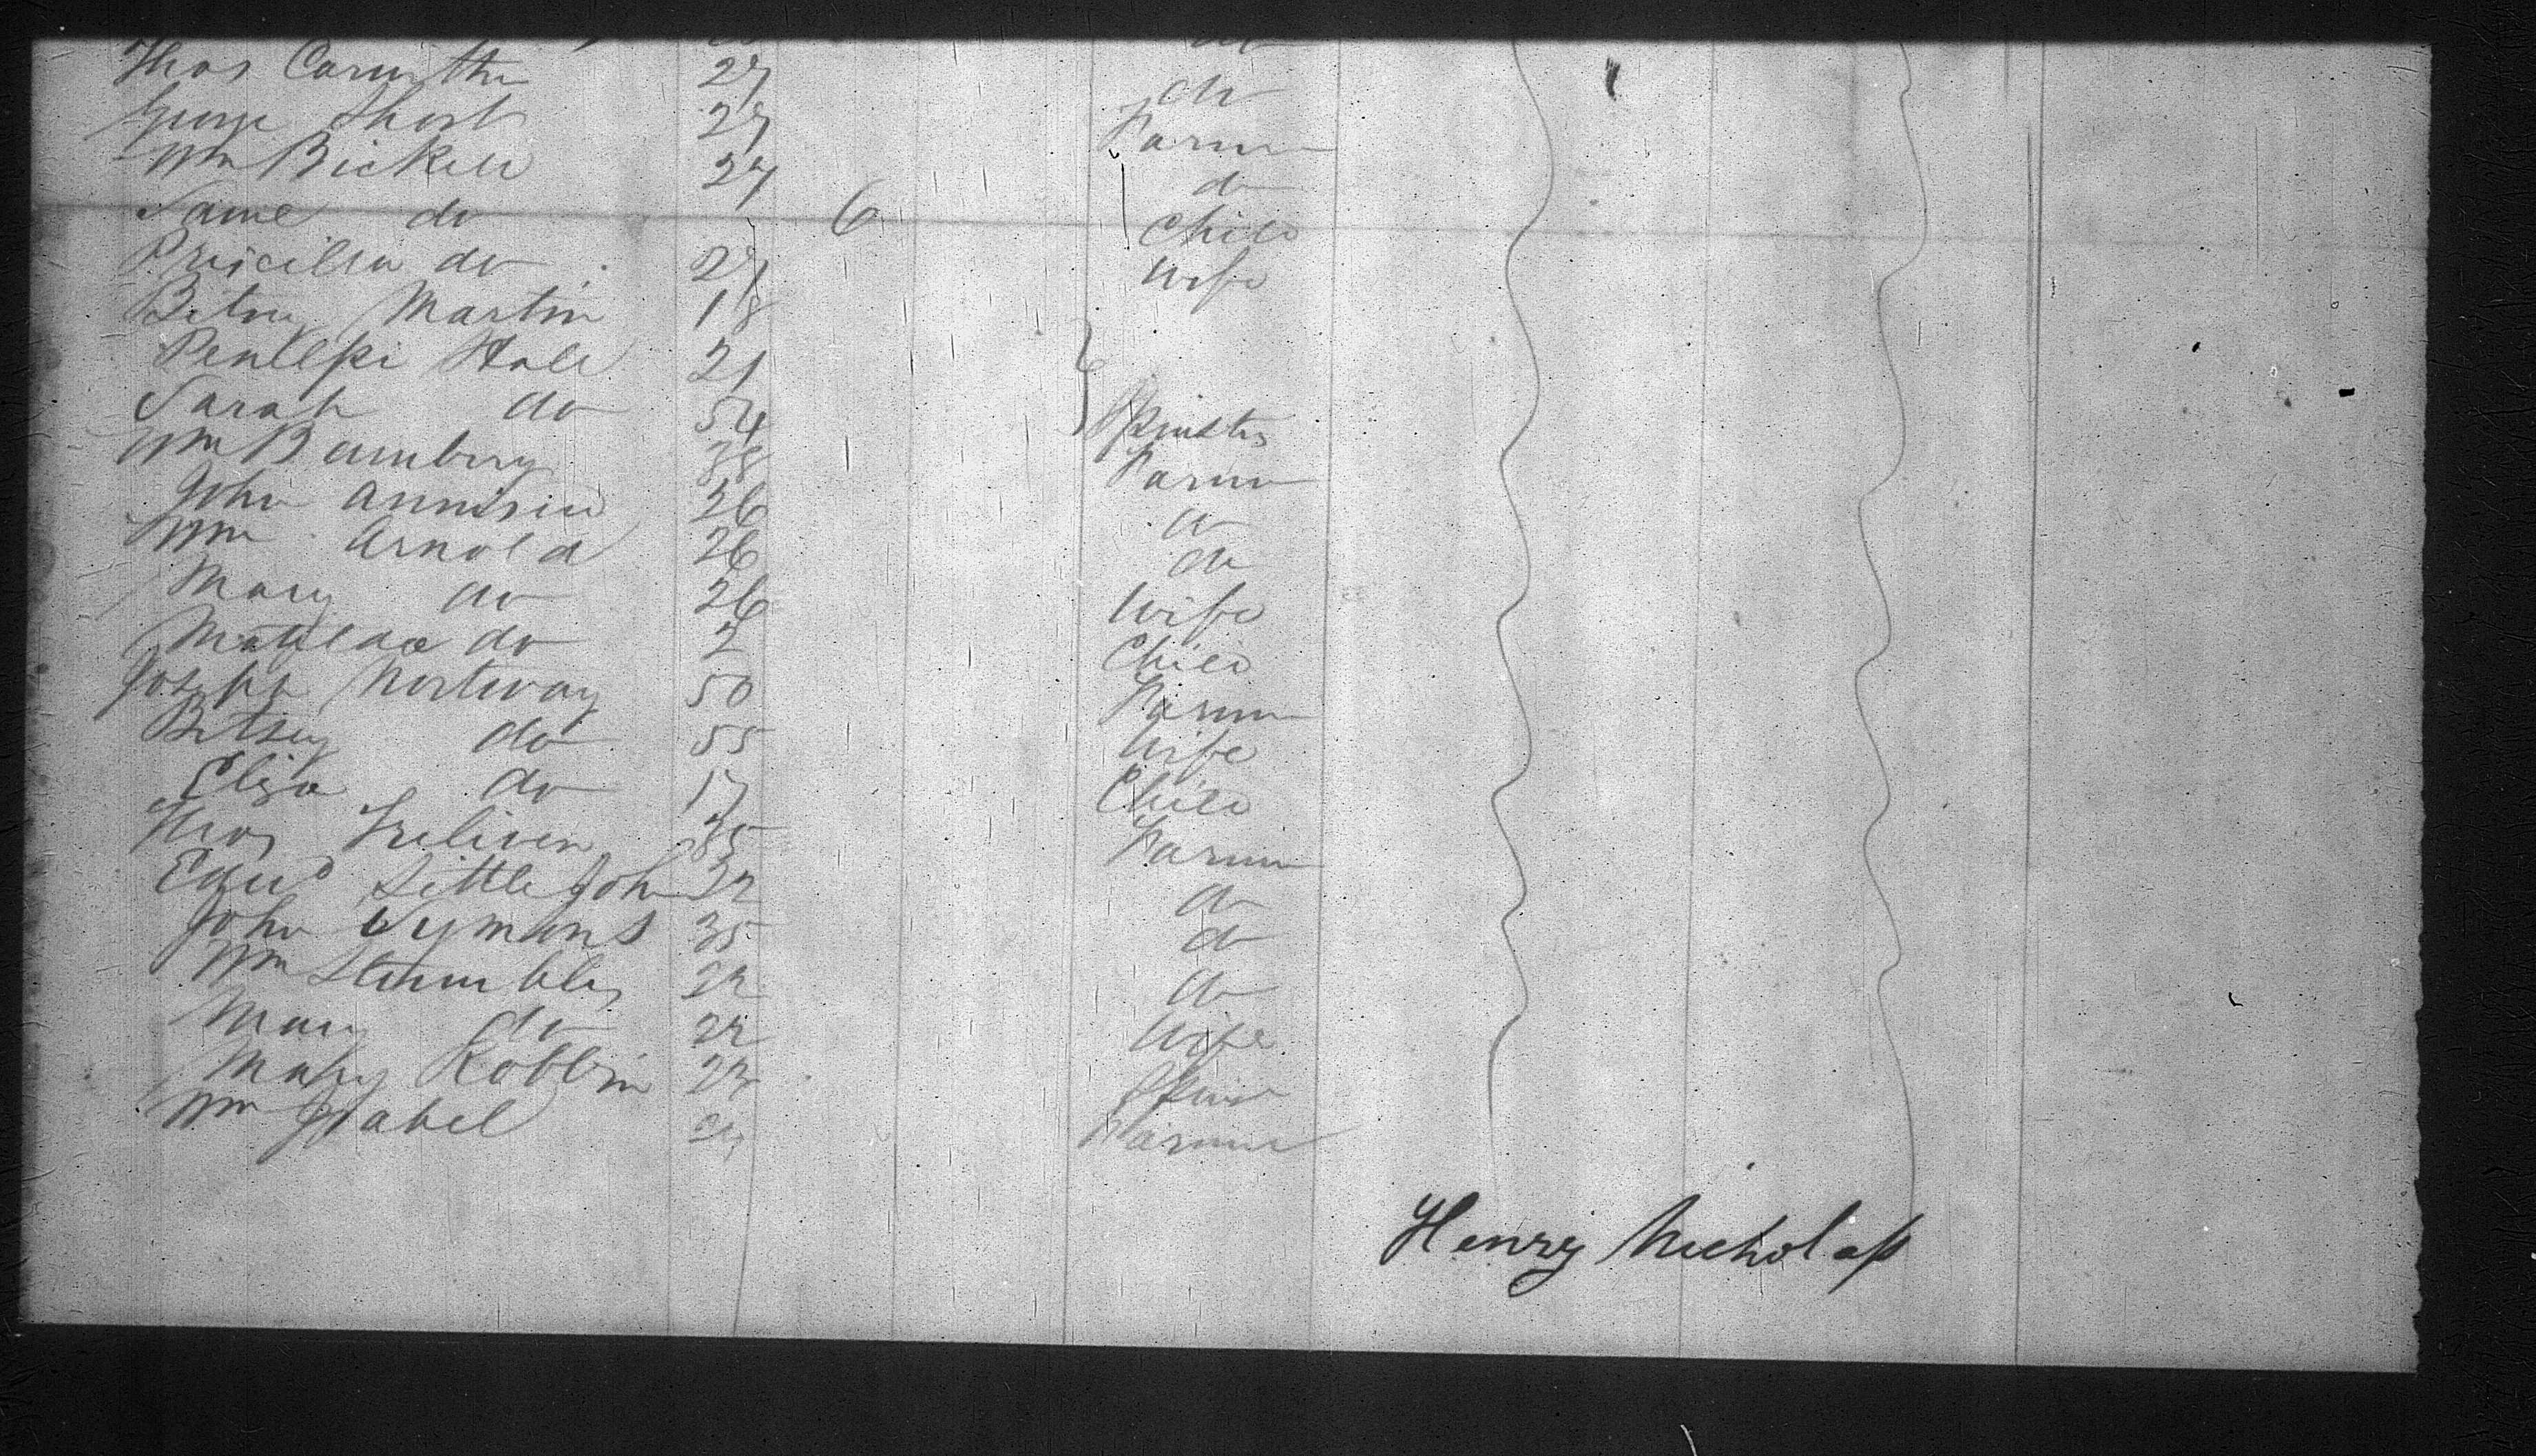 Thos Carwithn 27 do
George Short 27 Farmr
Wm Bickell 27 do
Same do 6 Child
Priscilla do 27 Wife
Betsy Martin 18
Penllpi Hall 21
Sarah do 54 Spinsters
Wm Bambury 38 Farmr
John 26 do
Wm Arnold 26 do
Mary do 26 Wife
Matilda do 2 Child
Joseph Northway 50 Farmr
Betsey do 55 Wife
Eliza do 17 Child
Thos Treliven 35 Farmr
Edwd Little John 32 do
John Symons 35 do
Wm Stumbles 22 do
Mary do 22 Wife
Mary Robbin 22 Spinr
Wm Isabel Farmr
Henry Nicholass